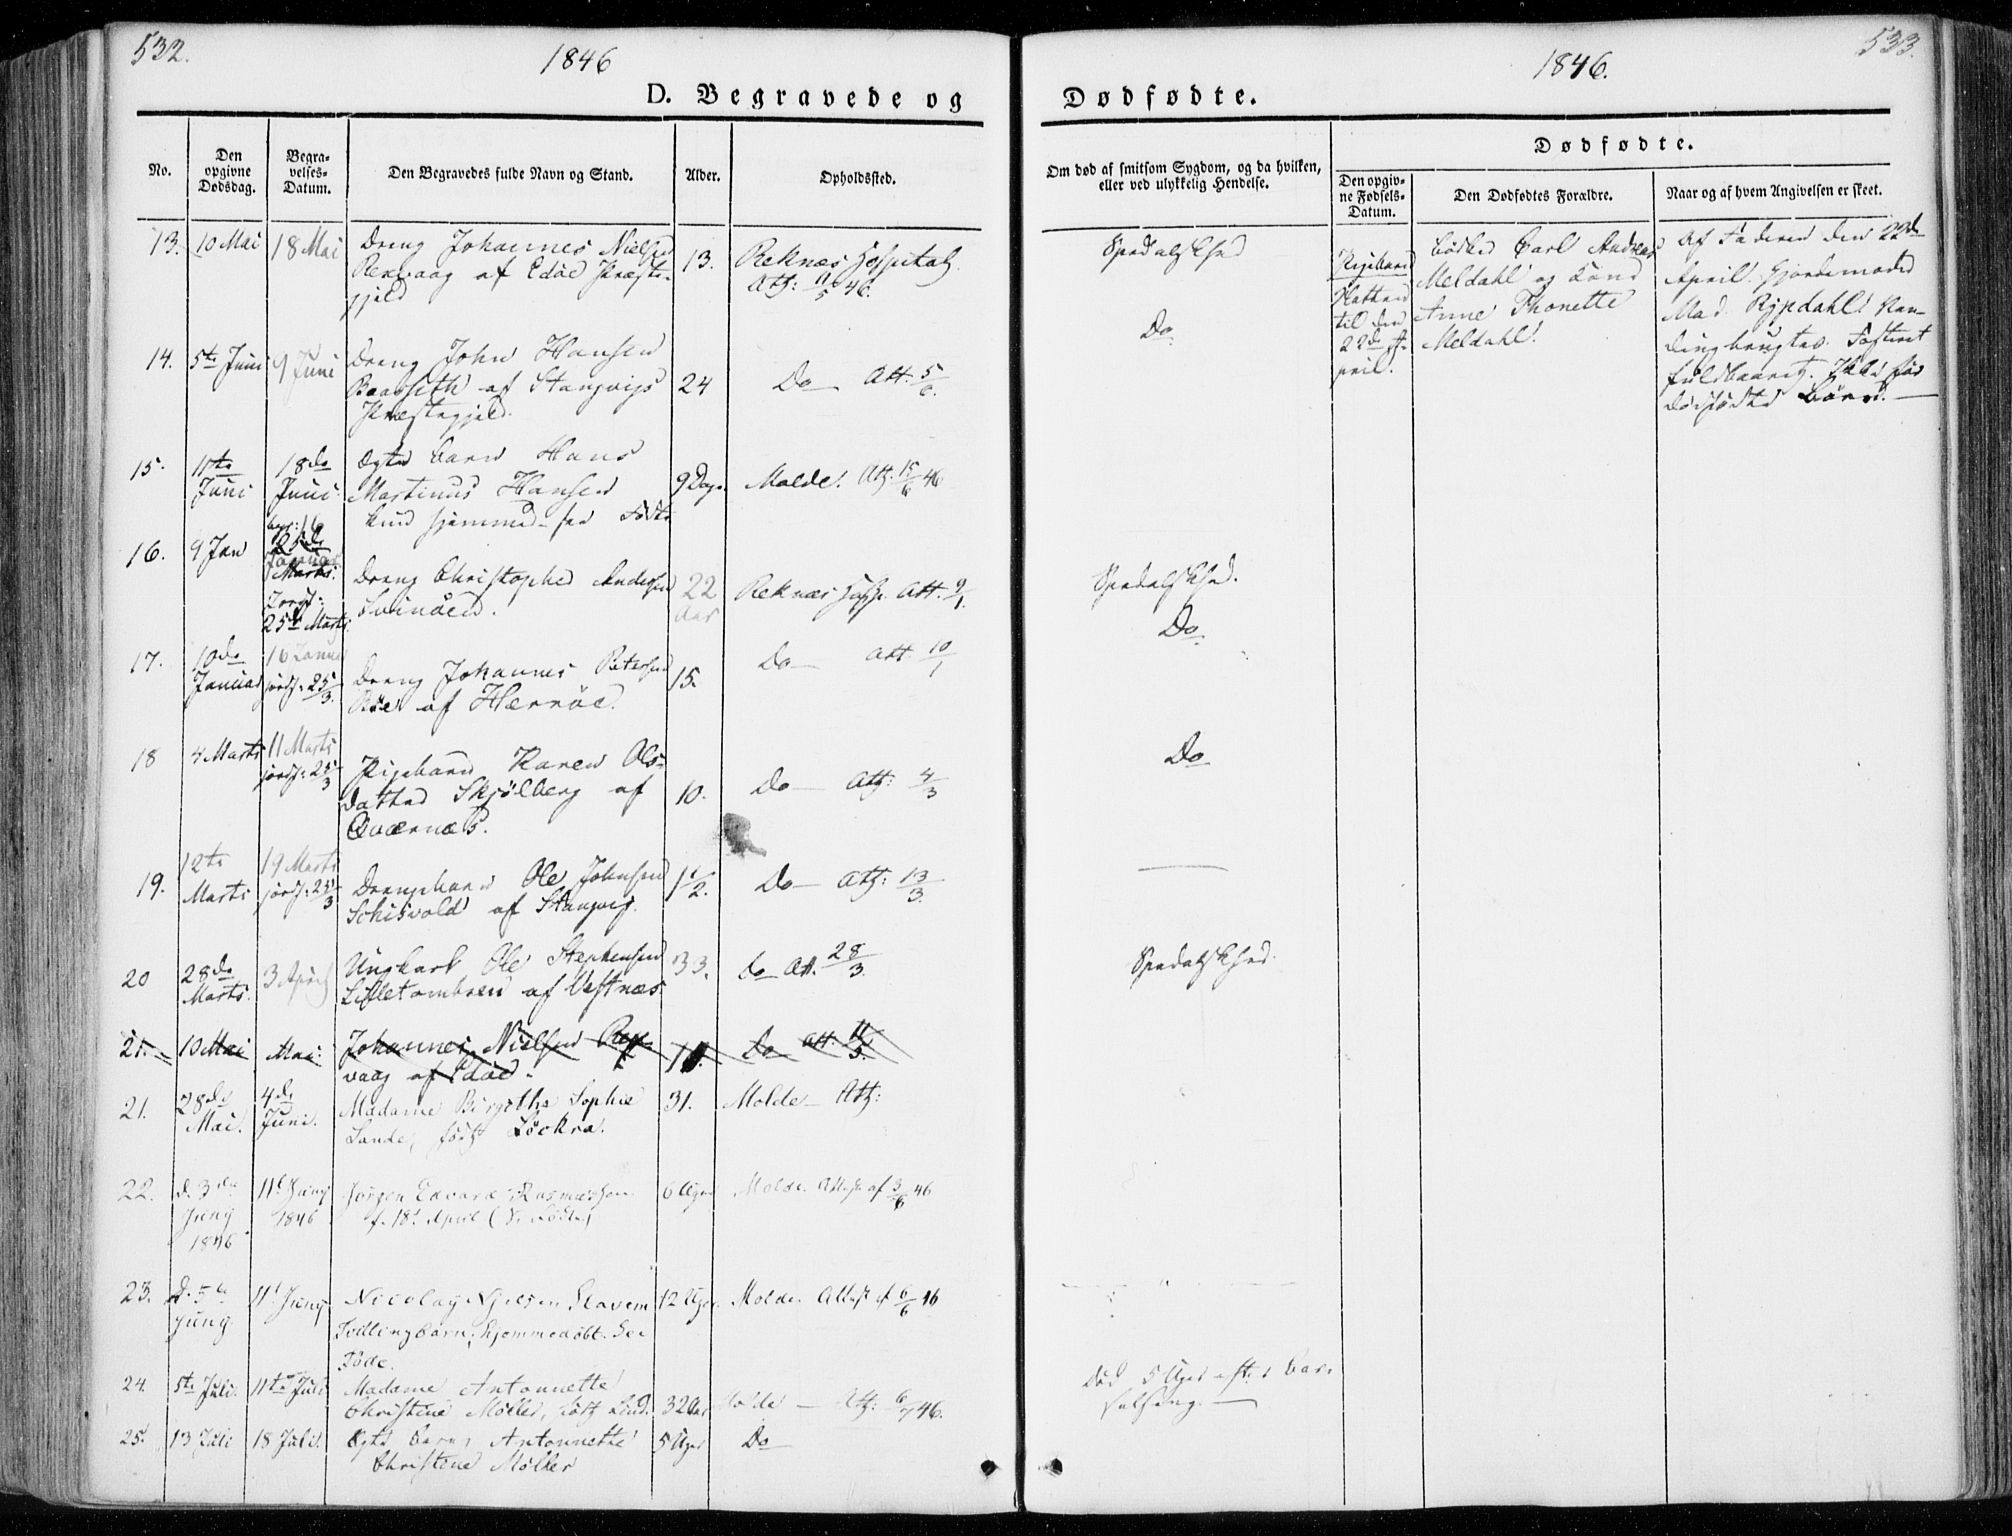 532.
1846
D. Begravede og
No.
Den opgivne Dødsdag.
Begra-velses-Datum.
Den Begravedes fulde Navn og Stand.
Alder.
Opholdssted.
13. 10 Mai 18 Mai Dreng Johannes Nielsen 13. Reknæs Hospital.
Rexvaag af Edøe Præste- Att: 11/5 46.
gjeld
14. 5te Juni 9 Juni Dreng John Hansen
af Stangvigs 24 Do Att. 5/6.
Præstegjeld.
15. 11te Juni 18de Juni Ægte Barn Hans
Martinus Hansen 9 Dage Molde. Att. 15/6 46
kund hjemmed. see Fødte
16. 9 Jan 25de Marts
Jords: 25de Marts
Dreng Christopher Andersen 22 Aar Reknæs Hosp. Att. 9/1.
17. 10de Januar 16 Januar jords: 25/3.
Dreng Johannes Petersen 15. Do Att 10/1
Röe af Herröe.
18 4 Marts 11 Marts jords: 25/3
Pigebarn Karen Ols-
datter Skjølberg af 10. Do Att: 4/3
Qværnæs.
19. 12te Marts 19 Marts jords: 25/3
Drengebarn Ole Johnsen 1 1/2. Do Att: 13/3.
af Stangvig.
20 28de Marts. 3 April Ungkarl Ole Stephensen 33. do Att. 28/3.
Lilletombren af Vestnæs.
21. 10 Mai Mai. Johannes Nielsen Rex- Do Att. 11/5.
vaag af Edöe.
21. 28de Mai. 4de Juni. Madame Birgithe Sophie 31. Molde Att:
Lande, født Löckra.
22. d. 3die Juny 1846 11te Juny 1846 Jørgen Edvard Rasmussen 6 Uger Molde. Attest af 3/6 46
f. 18d April (S. Fødte)
23. D. 5te Juny. 11t Juny Nicolay Njelsen Slavem 12 Uger Molde. Attest af 6/6 46
Tvillingbarn, hjemmedøbt. See
Föde.
24. 5te Juli. 11te Juli Madame Antonnette
Christine Möller, født Lund. 32 Aar Molde Att: 6/7 46.
25. 13 Juli 18 Juli. Ægte Barn Antonnette 5 Uger Do
Christine Möller
1846.
533.
Dødfødte.
Om død af smitsom Sygdom, og da hvilken, eller ved ulykkelig Hendelse.
Dødfødte.
Den opgiv-ne Fødsels-Datum.
Den Dødfødtes Forældre.
Naar og af hvem Angivelsen er skeet.
Spedalskhed
Do
Spedalskhed.
Do
Do
Spedalskhed.
Död 5 Uger efter Bar-
selseng.
Pigebarn
Natten
til den
22de A-
pril.
Bödker Carl Andreas
Meldahl og Kone
Anne Thonette
Meldahl.
Af Faderen den 22de
April. Gjordemoder
Mad. Rypdahl
Fosteret
fuldbaaret. Ikke før
dødfødte Börn.